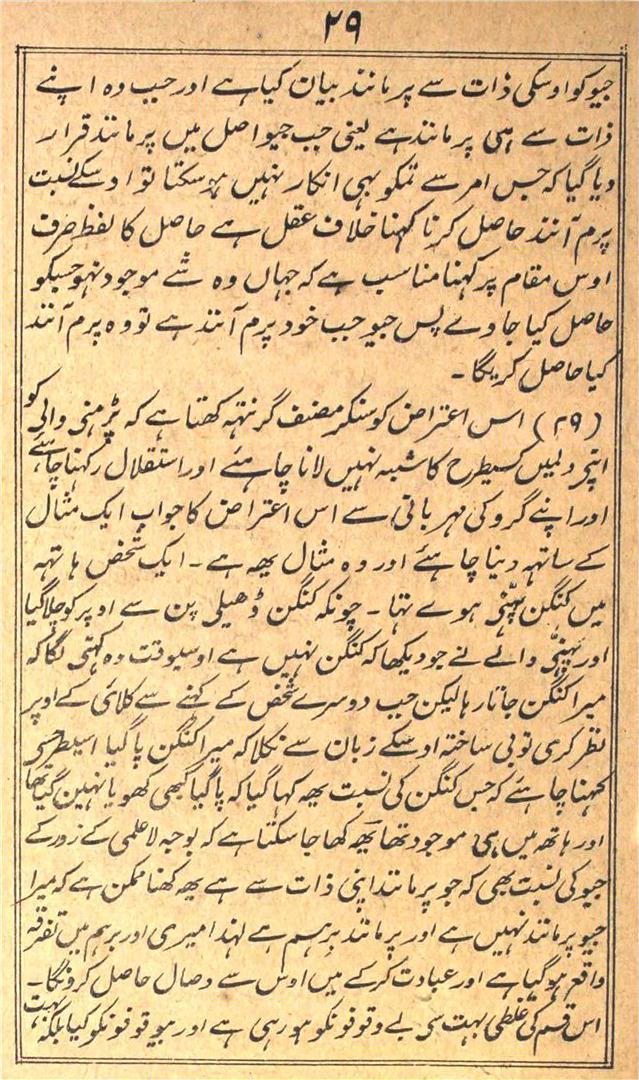 ۲۹
جیو کو اوسکی ذات سے پرمانند بیان کیا ہے اور جب وہ اپنے
ذات سے ہی پرمانند ہے یعنی جب جیو اصل میں پرمانند قرار
دیا گیا کہ جس امر سے تمکو بہی انکار نہیں ہو سکتا تو اوسکے نسبت
پرم آنند حاصل کرنا کہنا خلاف عقل ہے حاصل کا لفظ صرف
اوس مقام پر کہنا مناسب ہے کہ جہاں وہ شے موجود نہو جسکو
حاصل کیا جاوے پس جیو جب خود پرم آنند ہے تو وہ پرم آنند
کیا حاصل کریگا ۔
(۲۹) اس اعتراض کو سنکر مصنف گرنتہہ کھتا ہے کہ پڑہنی والی کو
اپنی دلمیں کسیطرح کا شبہ نہیں لانا چاہئے اور استقلال رکہنا چاہئے
اور اپنے گرو کی مہربانی سے اس اعتراض کا جواب ایک مثال
کے ساتہہ دینا چاہئے اور وہ مثال یھہ ہے ۔ ایک شخص ہاتہہ
میں کنگن پہنی ہوے تہا ۔ چونکہ کنگن ڈھیلی پن سے اوپر کو چلا گیا
اور پہنّی والے نے جو دیکھا کہ کنگن نہیں ہے اوسیوقت وہ کہنی لگا کہ
میرا کنگن جاتا رہا لیکن جب دوسرے شخص کے کہنے سے کلائی کے اوپر
نظر کری تو بی ساختہ اوسکے زبان سے نکلا کہ میرا کنگن پا گیا اسیطرحسی
کہنا چاہئے کہ جس کنگن کی نسبت یھہ کہا گیا کہ پا گیا کبھی کھویا نہین گیا تھا
اور ہاتھ میں ہی موجود تھا یھہ کھا جا سکتا ہے کہ بوجہ لاعلمی کے زور کے
جیو کی نسبت بھی کہ جو پرمانند اپنی ذات سے ہے یھہ کھنا ممکن ہے کہ میرا
جیو پرمانند نہیں ہے اور پرمانند برہم ہے لہذا میری اور برہم میں تفرقہ
واقع ہو گیا ہے اور عبادت کرکے میں اوس سے وصال حاصل کرونگا ۔
اس قسم کی غلطی بہت سی بے وقوفونکو ہو رہی ہے اور بیوقوفونکو کیا بلکہ بہت